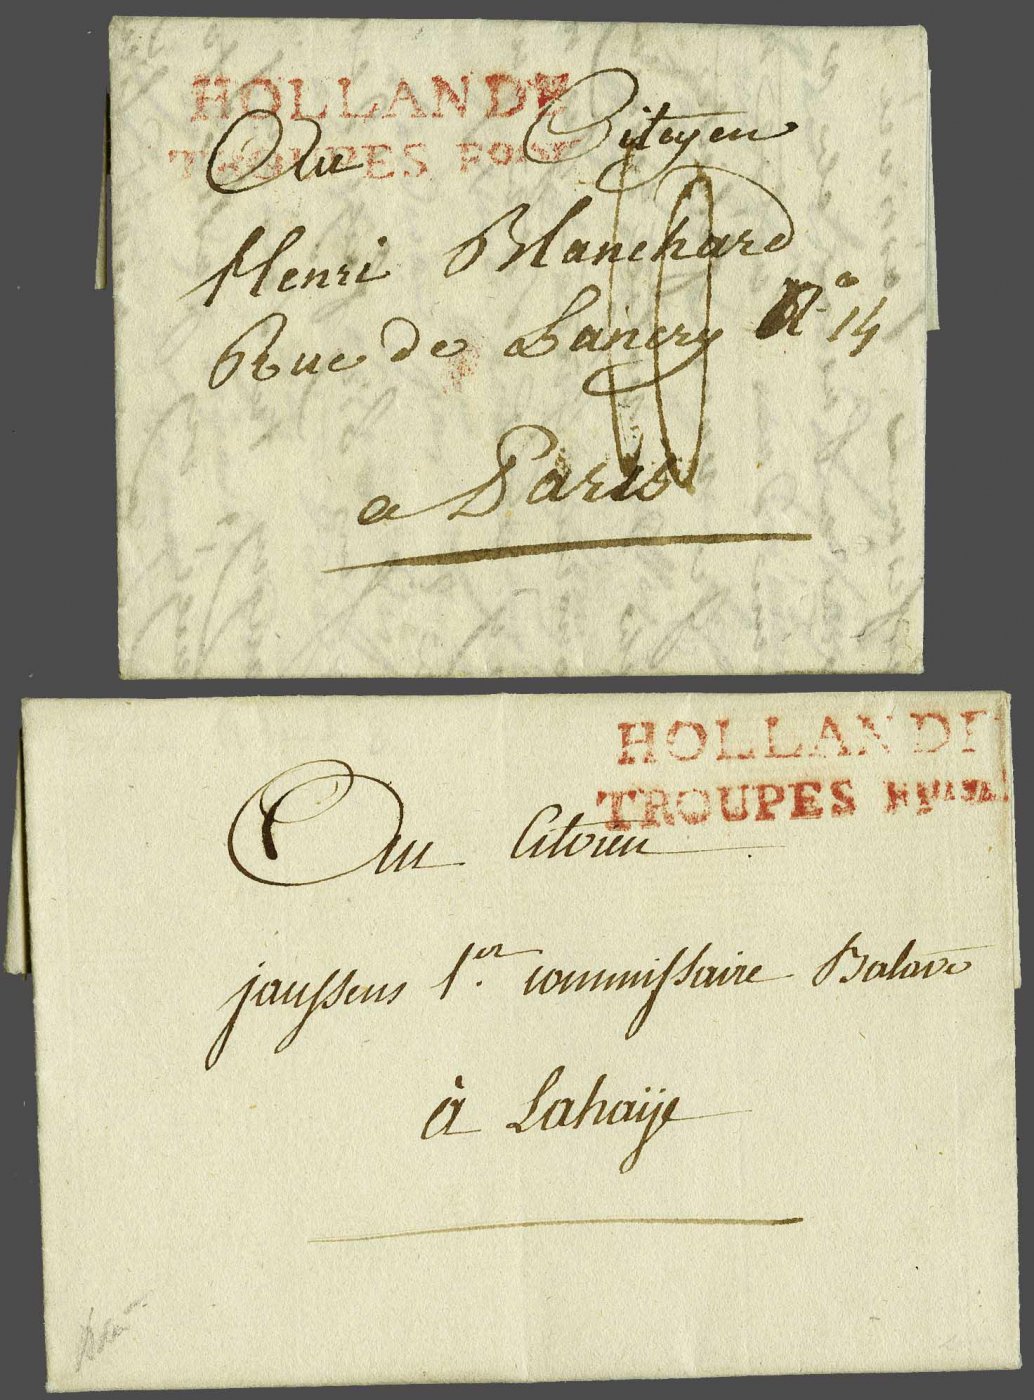 HOLLANDE
TROUPES
Au Citoyen
Henri Blanchard
Rue de Lancry N.º 14
10
a Paris
HOLLANDE
TROUPES
Au Citoien
janssens 1.er commissaire Batave
à Lahaÿe